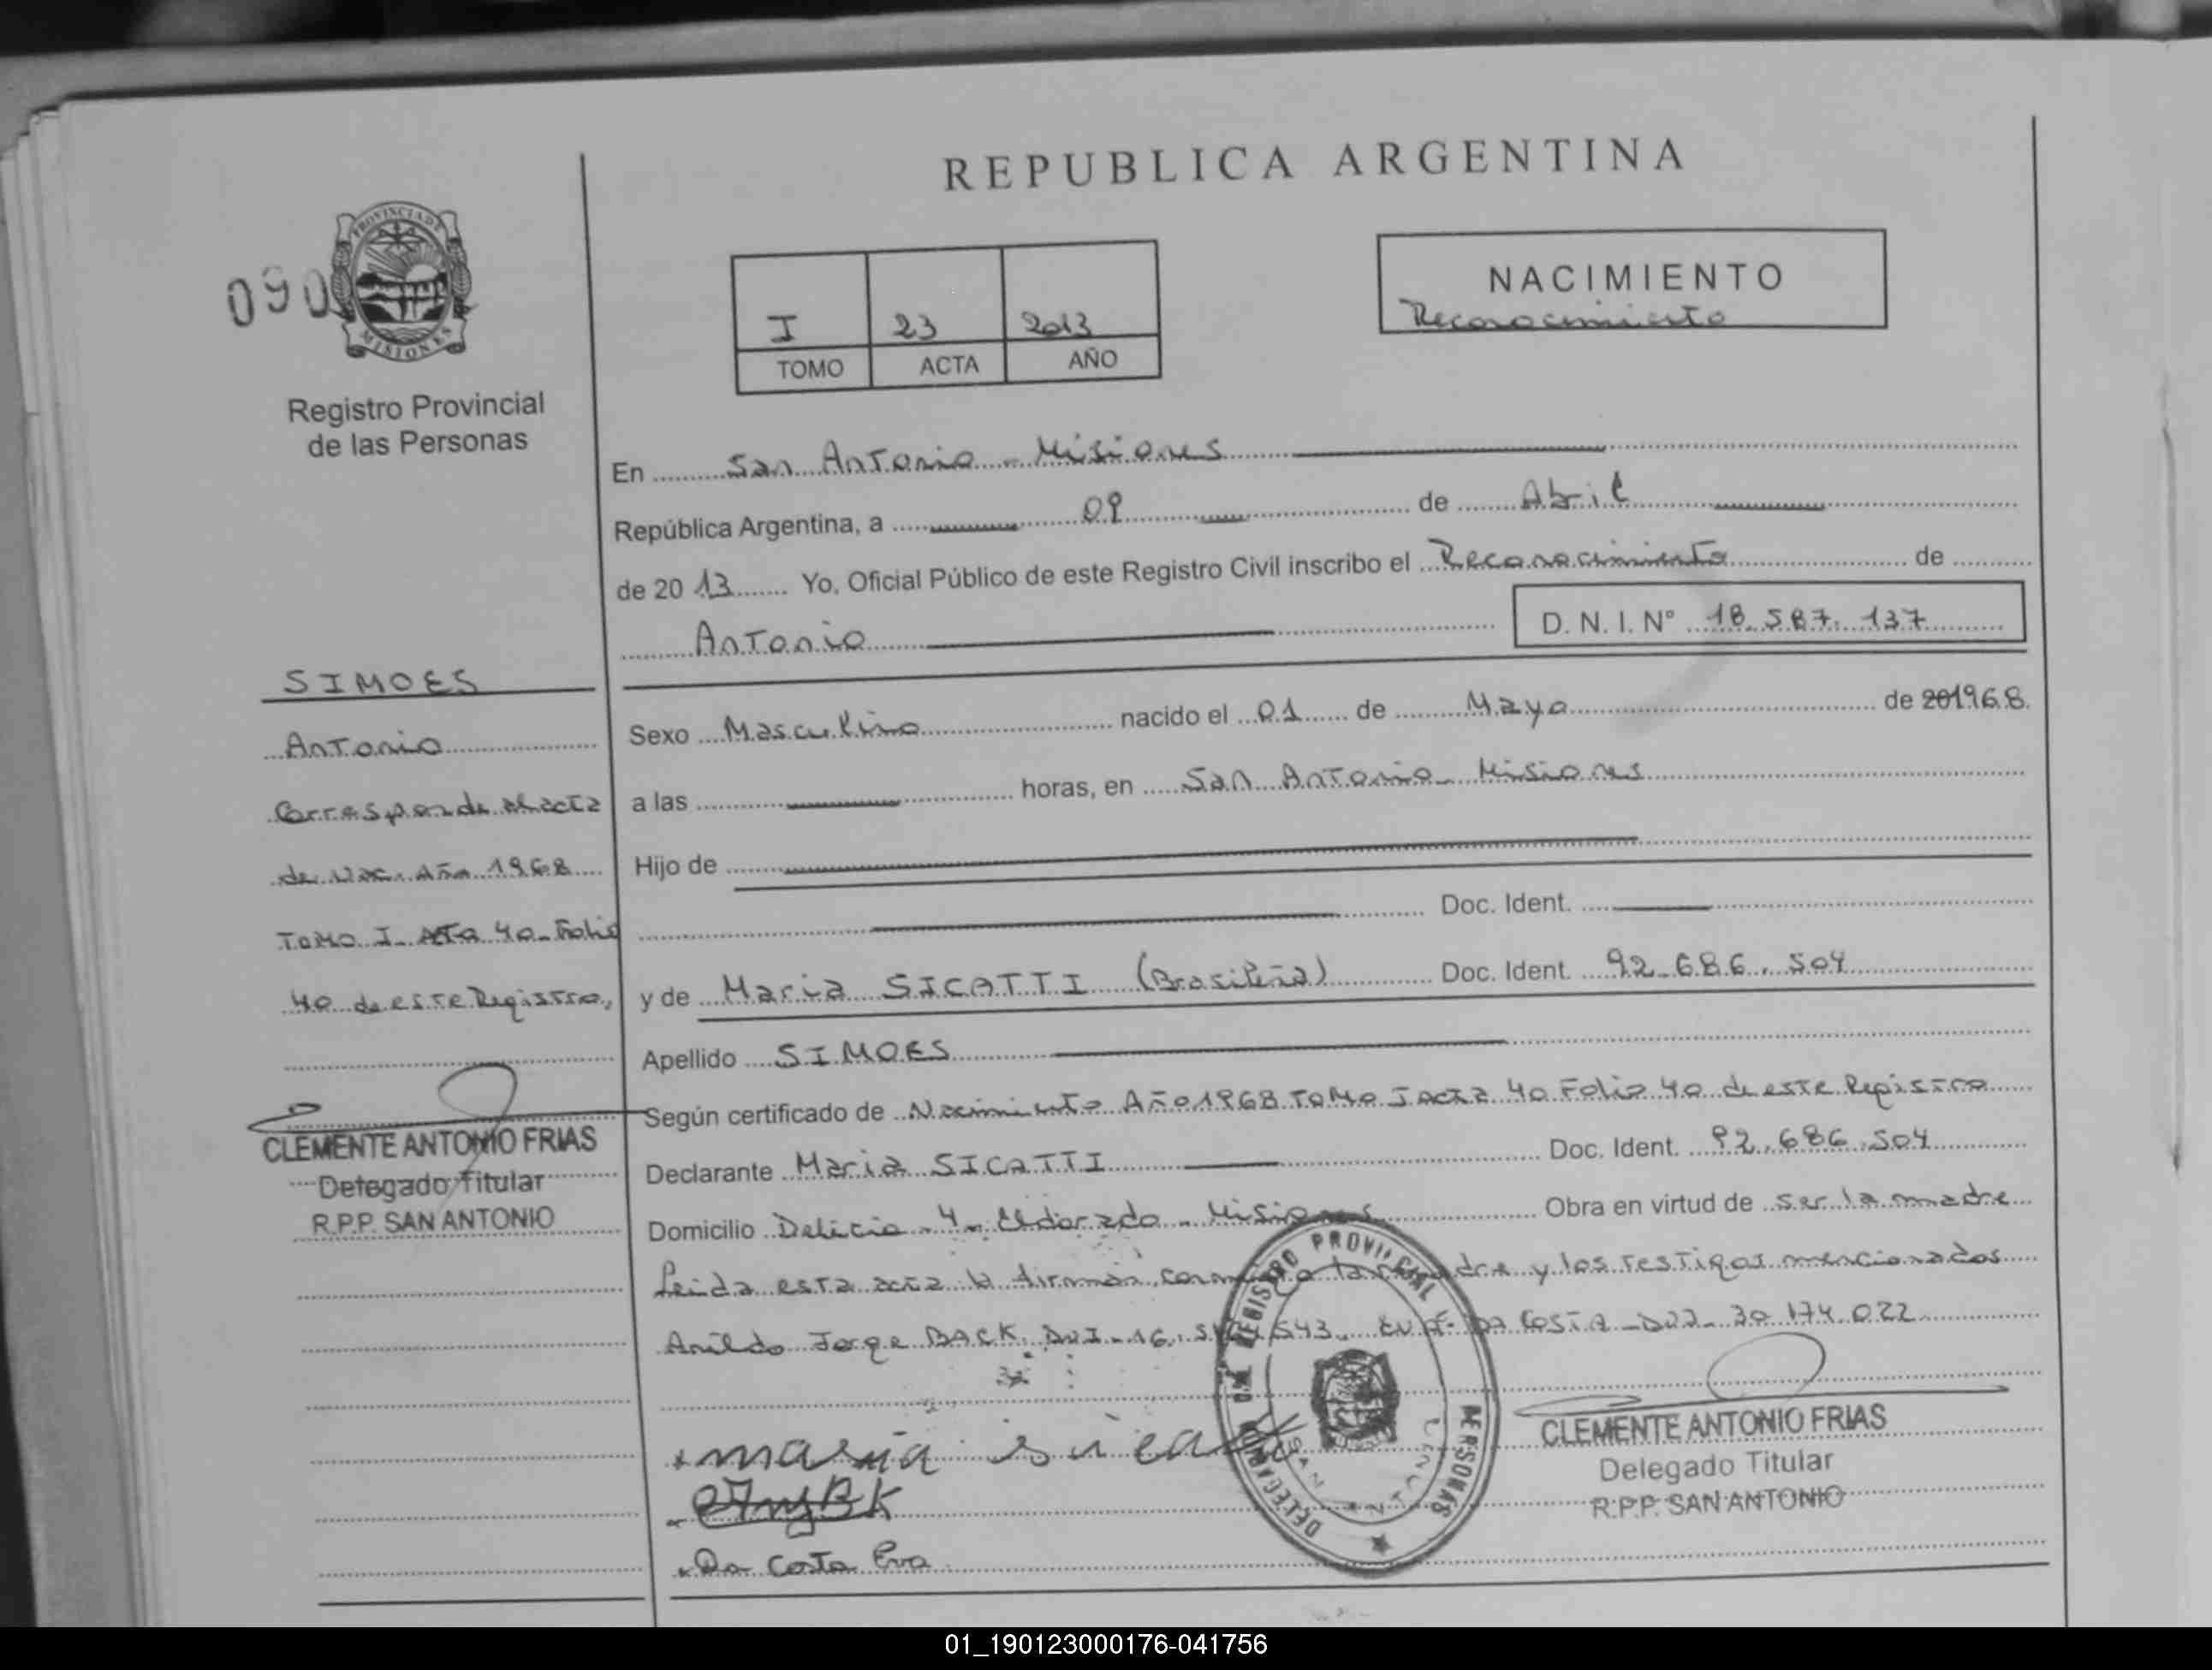 REPUBLICA ARGENTINA
090
PROVINCIA DE
MISIONES
Registro Provincial
de las Personas
I 23 2013
TOMO ACTA AÑO
NACIMIENTO
Reconocimiento
En San Antonio - Misiones
República Argentina, a 09 de Abril
de 20 13 Yo, Oficial Público de este Registro Civil inscribo el Reconocimiento de
Antonio D. N. I. Nº 18.587.137
SIMOES
Antonio
Corresponde al acta
de Nac. Año 1968
Tomo I - Acta 40 - Folio
40 de este Registro,
CLEMENTE ANTONIO FRIAS
Delegado Titular
R.P.P. SAN ANTONIO
Sexo Masculino nacido el 01 de Mayo de 201968.
a las horas, en San Antonio - Misiones
Hijo de
Doc. Ident.
y de Maria SICATTI (Brasileña) Doc. Ident. 92.686.504
Apellido SIMOES
Según certificado de Nacimiento Año 1968 Tomo I Acta 40 Folio 40 de este Registro
Declarante Maria SICATTI Doc. Ident. 92.686.504
Domicilio Delicia - 4 - Eldorado - Misiones Obra en virtud de ser la madre
Leida esta acta la firman conmigo la madre y los Testigos mencionados
Anildo Jorge BACK DNI - 16. 543 DA COSTA - DNI - 30.174.022
maria
Da Costa Eva
DELEGACION REGISTRO PROVINCIAL PERSONAS
SAN ANTONIO
CLEMENTE ANTONIO FRIAS
Delegado Titular
R.P.P. SAN ANTONIO
01_190123000176-041756